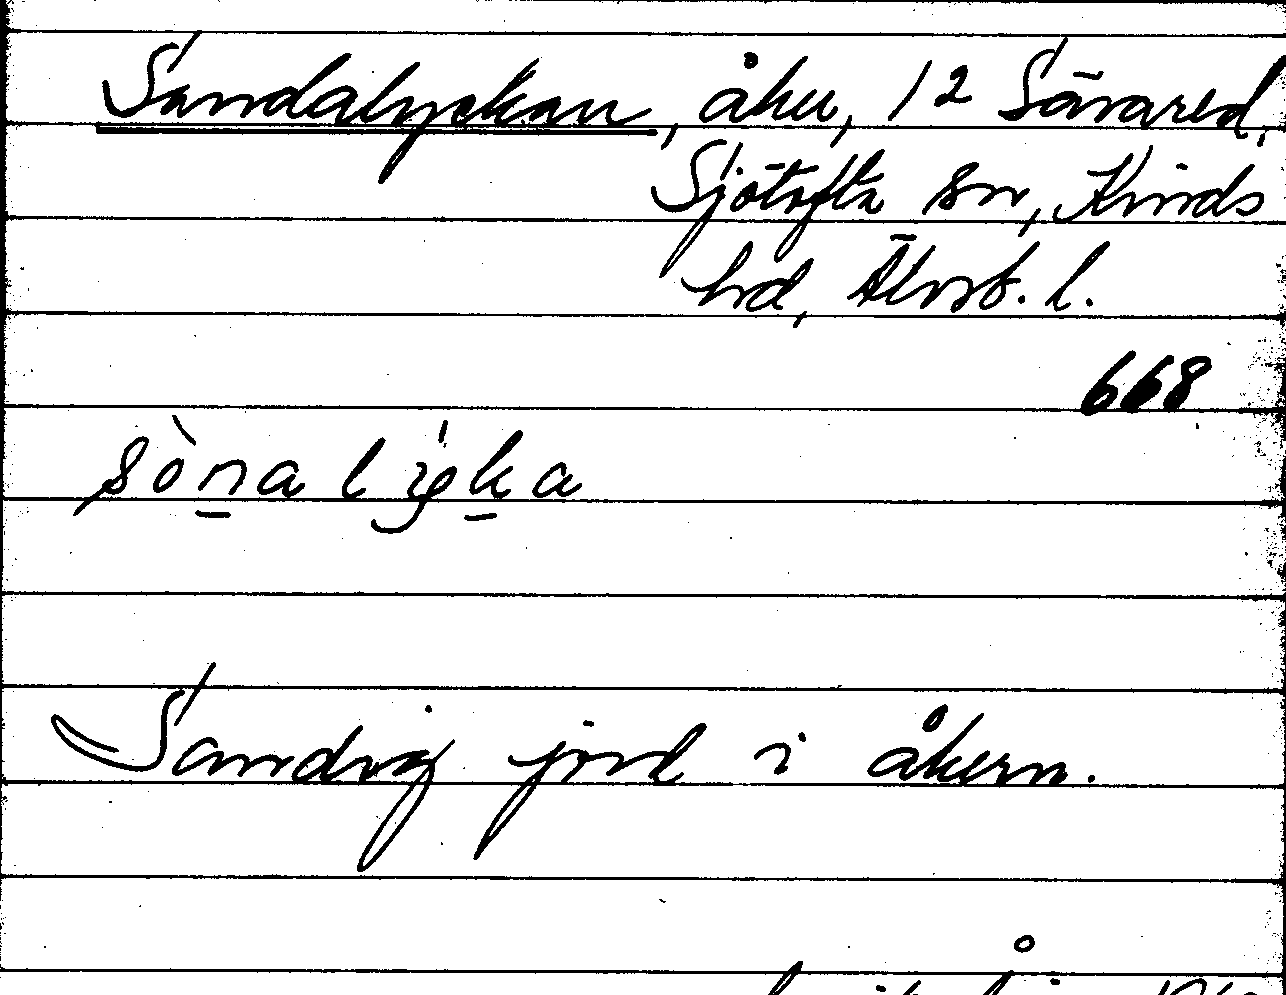 Sandalyckan, åker, 12 Sävared,
Sjötofta sn, Kinds
hd, Älvsb. l.
668
sònalyka
Sandig jord i åkern.